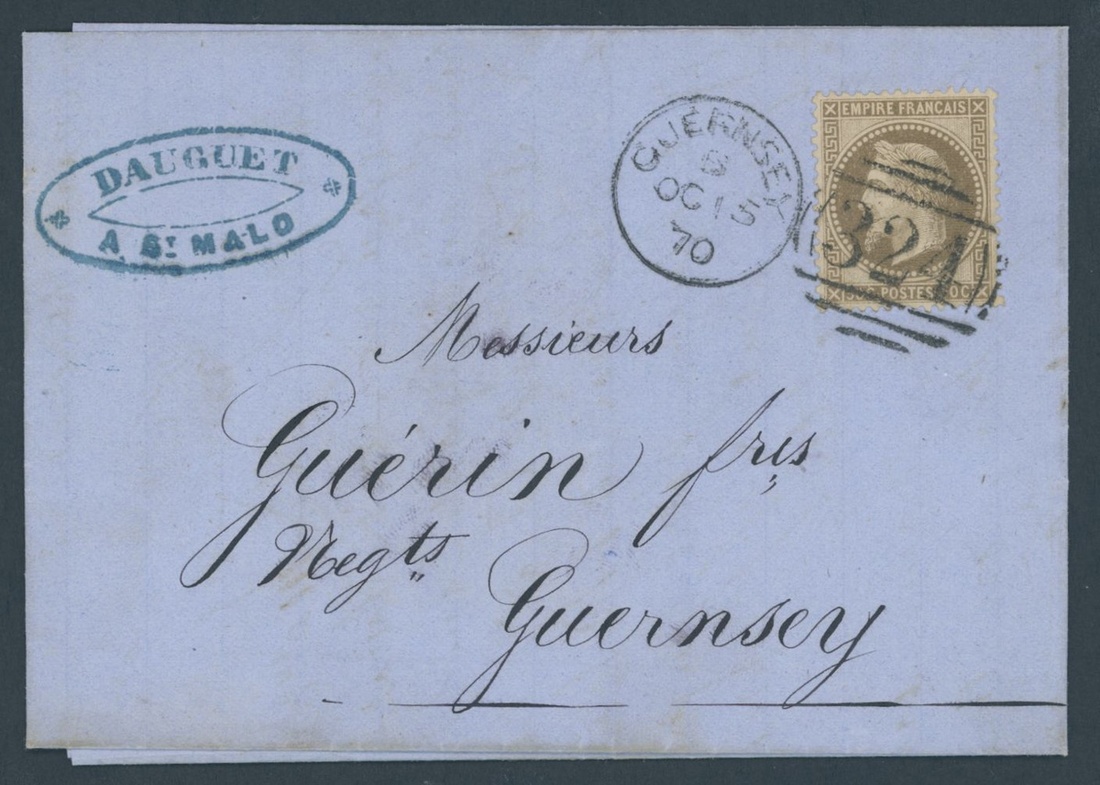 DAUGUET
A ST MALO
GUERNSEY
OC 15
70
EMPIRE FRANCAIS
324
30C POSTES 30C
Messieurs
Guérin fres
Negts
Guernsey